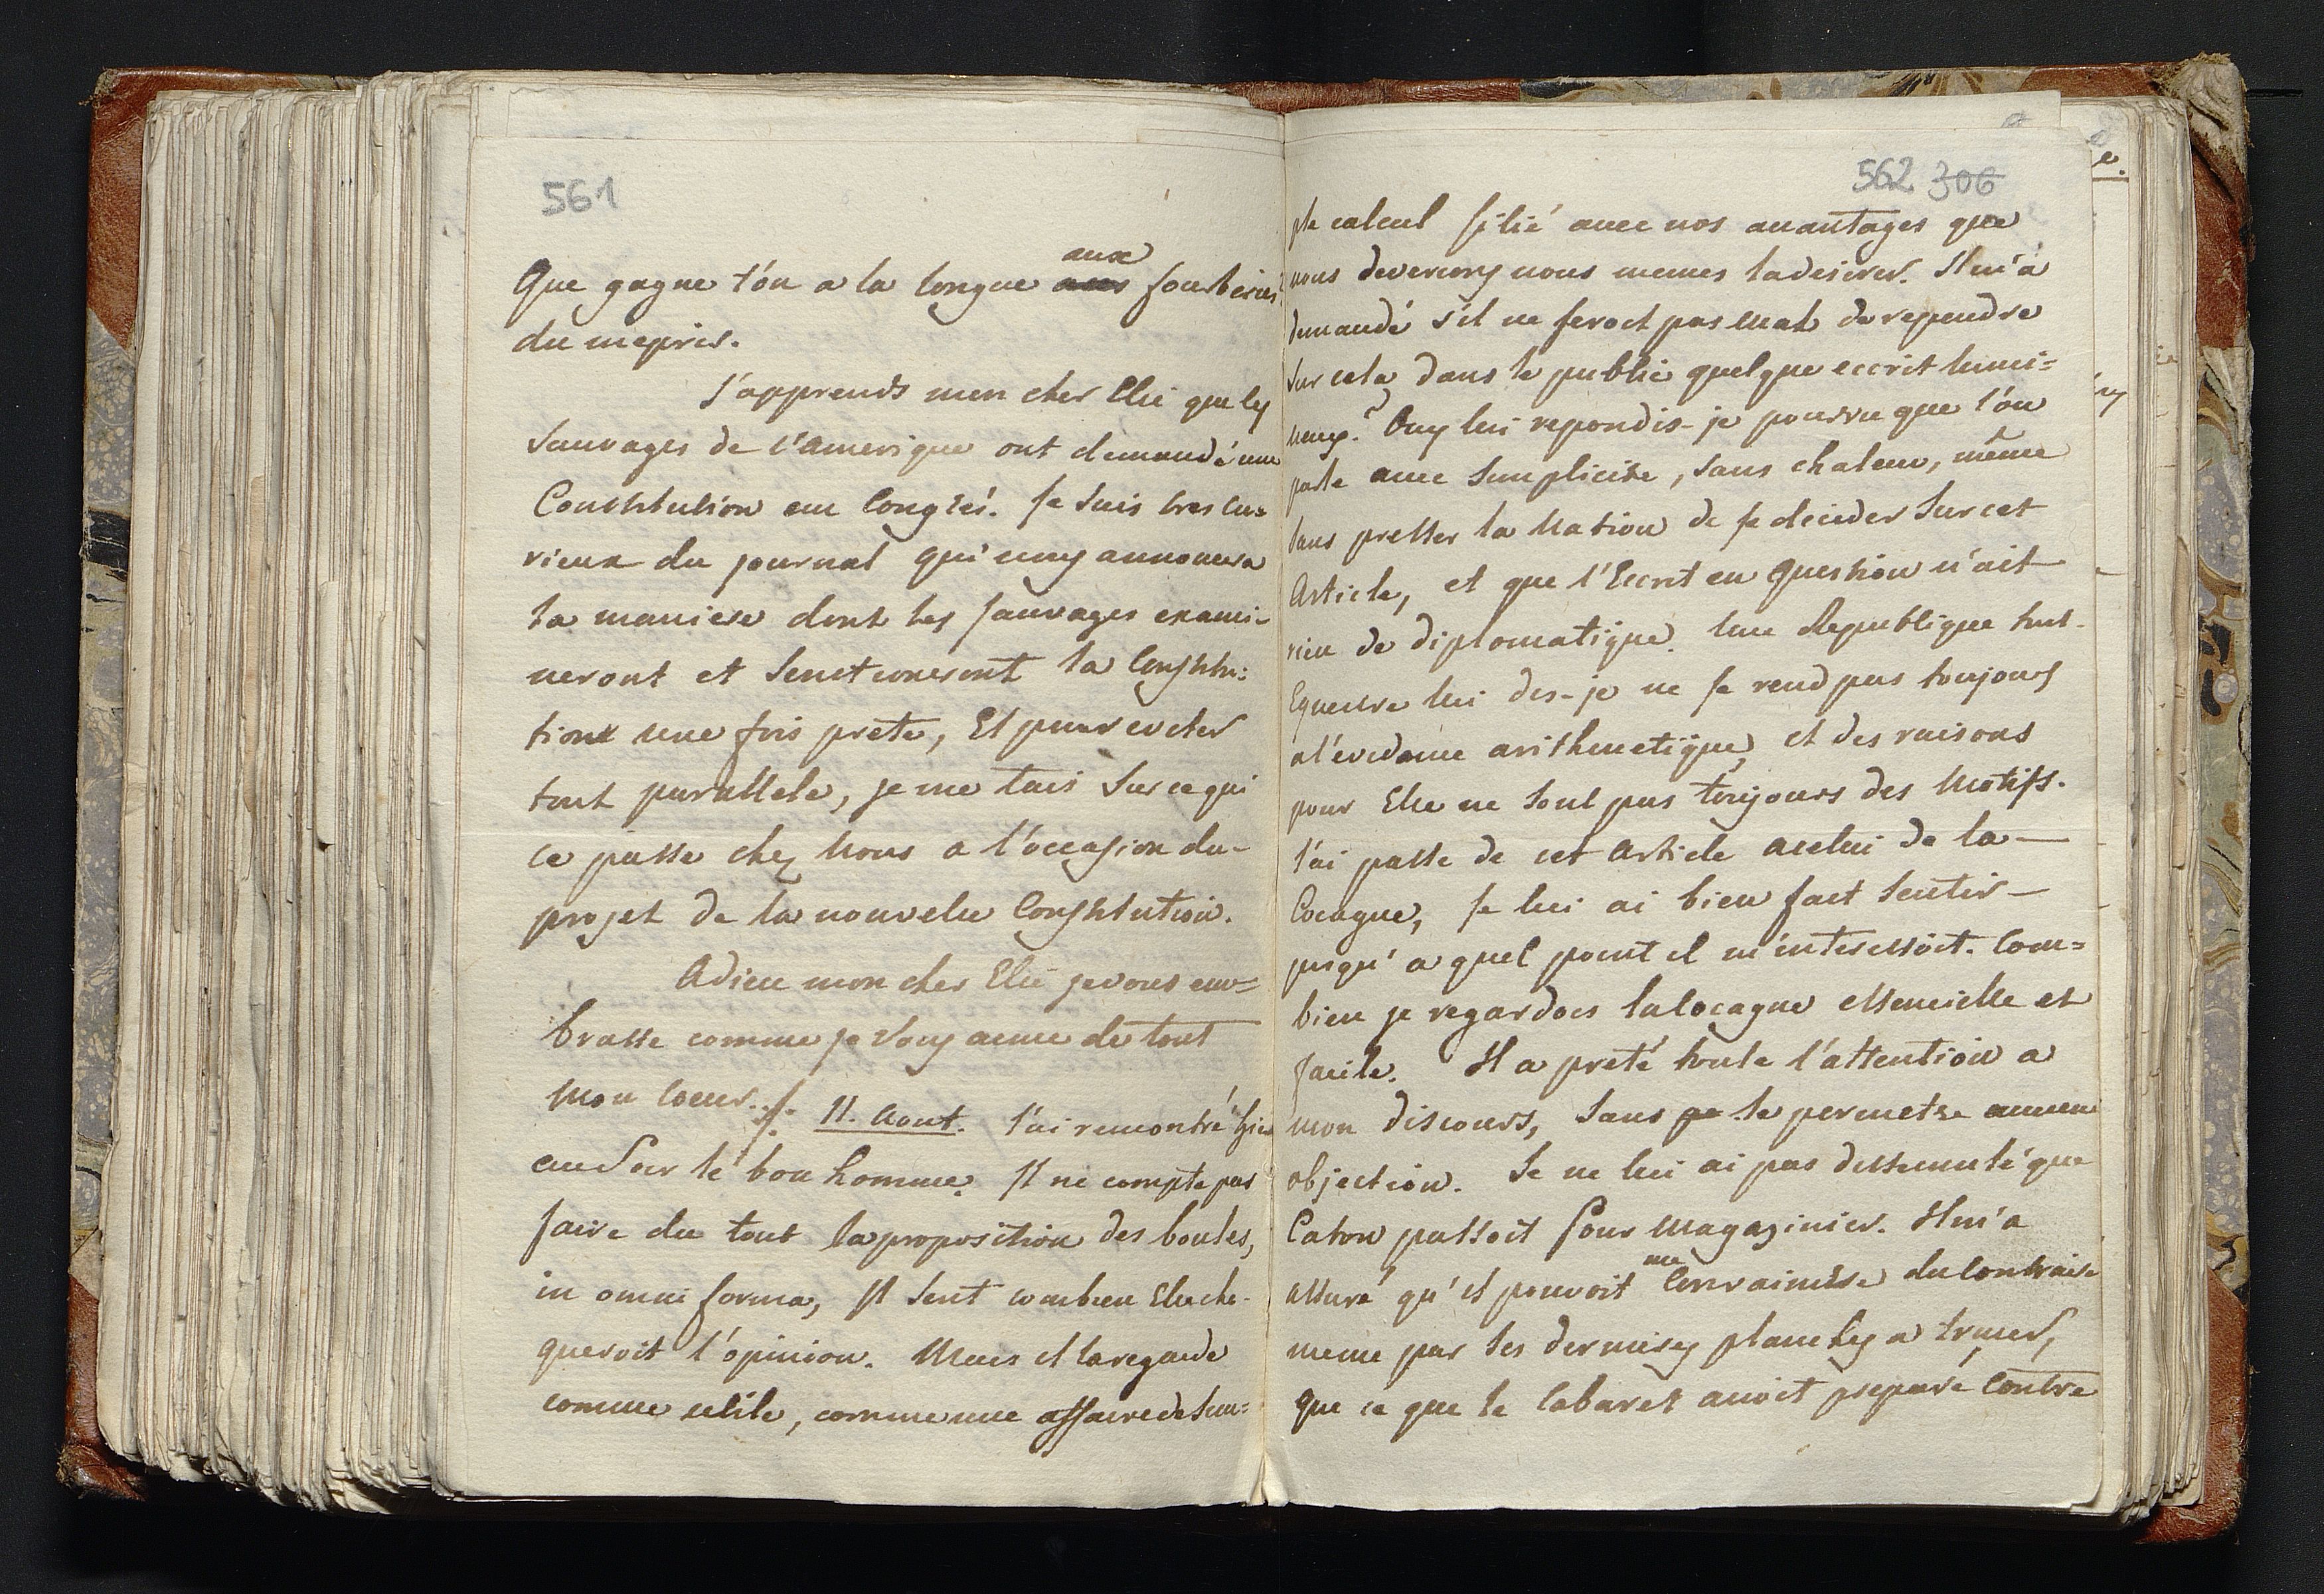 561
Que gagne t'on a la longue aux fourberies?
du mepris.
J'apprends mon cher Elie que les
Sauvages de l'Amerique ont demandé une
Constitution au Congrés. Je suis tres cu=
rieux du journal qui nous annoncera
la maniere dont les sauvages exami-
neront et sanctioneront la Constitu=
tion une fois prete, Et pour eviter
tout parallele, je me tais sur ce qui
ce passe chez Nous a l'occasion du
projet de la nouvelle Constitution.
Adieu mon cher Elie je vous em=
brasse comme je vous aime de tout
mon Coeur. /. 11. Aout. J'ai rencontré hier
au Soir le bon homme. Il ne compte pas
faire du tout la proposition des boules,
in omni forma, Il sent combien Elle cho-
queroit l'opinion. Mais il la regarde
comme utile, comme une affaire de Sim=
562 306
ple calcul si lié avec nos avantages que
nous deverions nous memes la desirer. Il m'a
demandé s'il ne seroit pas mal de rependre
sur cela dans le public quelque ecrit lumi=
neux? Ouy lui repondis-je pourvu que l'on
parle avec simplicite, sans chaleur, même
sans presser la Nation de se decider sur cet
Article, et que l'Ecrit en question n'ait
rien de diplomatique. Une Republique tout-
Equestre lui dis-je ne se rend pas toujours
a l'evidance arithmetique, et des raisons
pour Elle ne sont pas toujours des Motifs.
J'ai passé de cet Article a celui de la
Cocagne, Je lui ai bien fait sentir
jusqu'a quel point il m'interessoit. Com=
bien je regardois la Cocagne essencielle et
facile. Il a preté toute l'attention a
mon discours, sans se permetre aucune
objection. Je ne lui ai pas dissimulé que
Caton passoit pour Magazinier. Il m'a
assuré qu'il pouvoit me Convaincre du Contraire
meme par les dernieres planches a tracer,
que ce que le Cabaret avoit preparé Contre